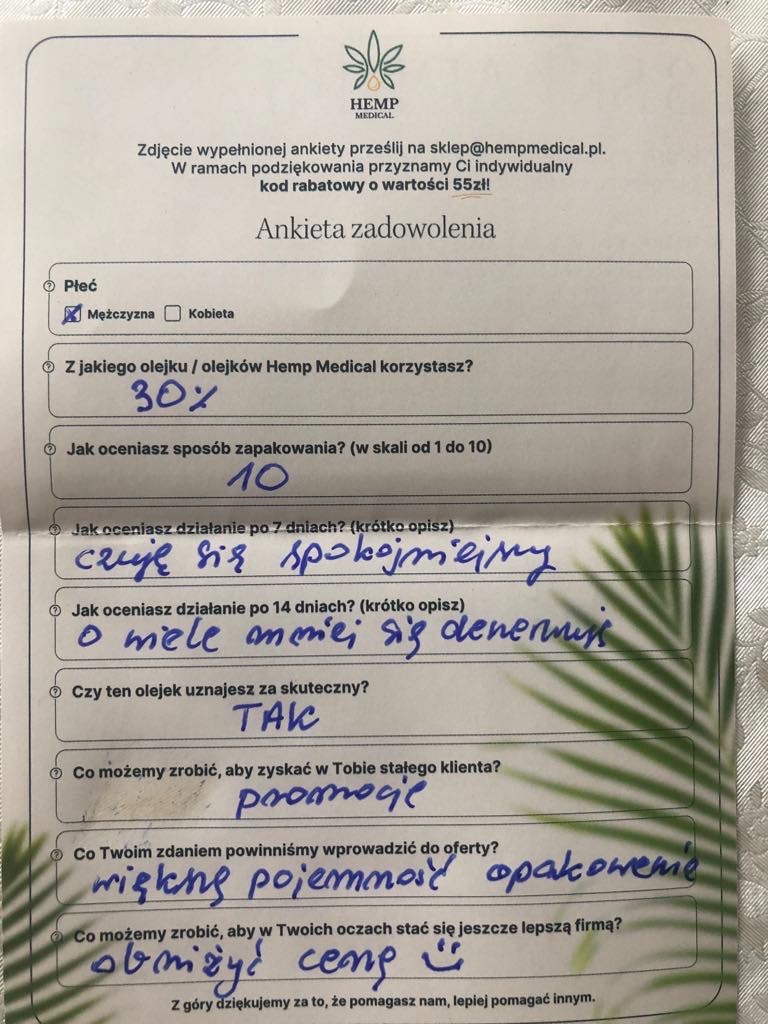 HEMP
MEDICAL
Zdjęcie wypełnionej ankiety prześlij na sklep@hempmedical.pl.
W ramach podziękowania przyznamy Ci indywidualny
kod rabatowy o wartości 55zł!
Ankieta zadowolenia
Płeć
Mężczyzna Kobieta
Z jakiego olejku / olejków Hemp Medical korzystasz?
30%
Jak oceniasz sposób zapakowania? (w skali od 1 do 10)
10
Jak oceniasz działanie po 7 dniach? (krótko opisz)
czuję się spokojniejszy
Jak oceniasz działanie po 14 dniach? (krótko opisz)
O wiele mniej się denerwuję
Czy ten olejek uznajesz za skuteczny?
TAK
Co możemy zrobić, aby zyskać w Tobie stałego klienta?
promocje
Co Twoim zdaniem powinniśmy wprowadzić do oferty?
większą pojemność opakowania
Co możemy zrobić, aby w Twoich oczach stać się jeszcze lepszą firmą?
obniżyć cenę
Z góry dziękujemy za to, że pomagasz nam, lepiej pomagać innym.